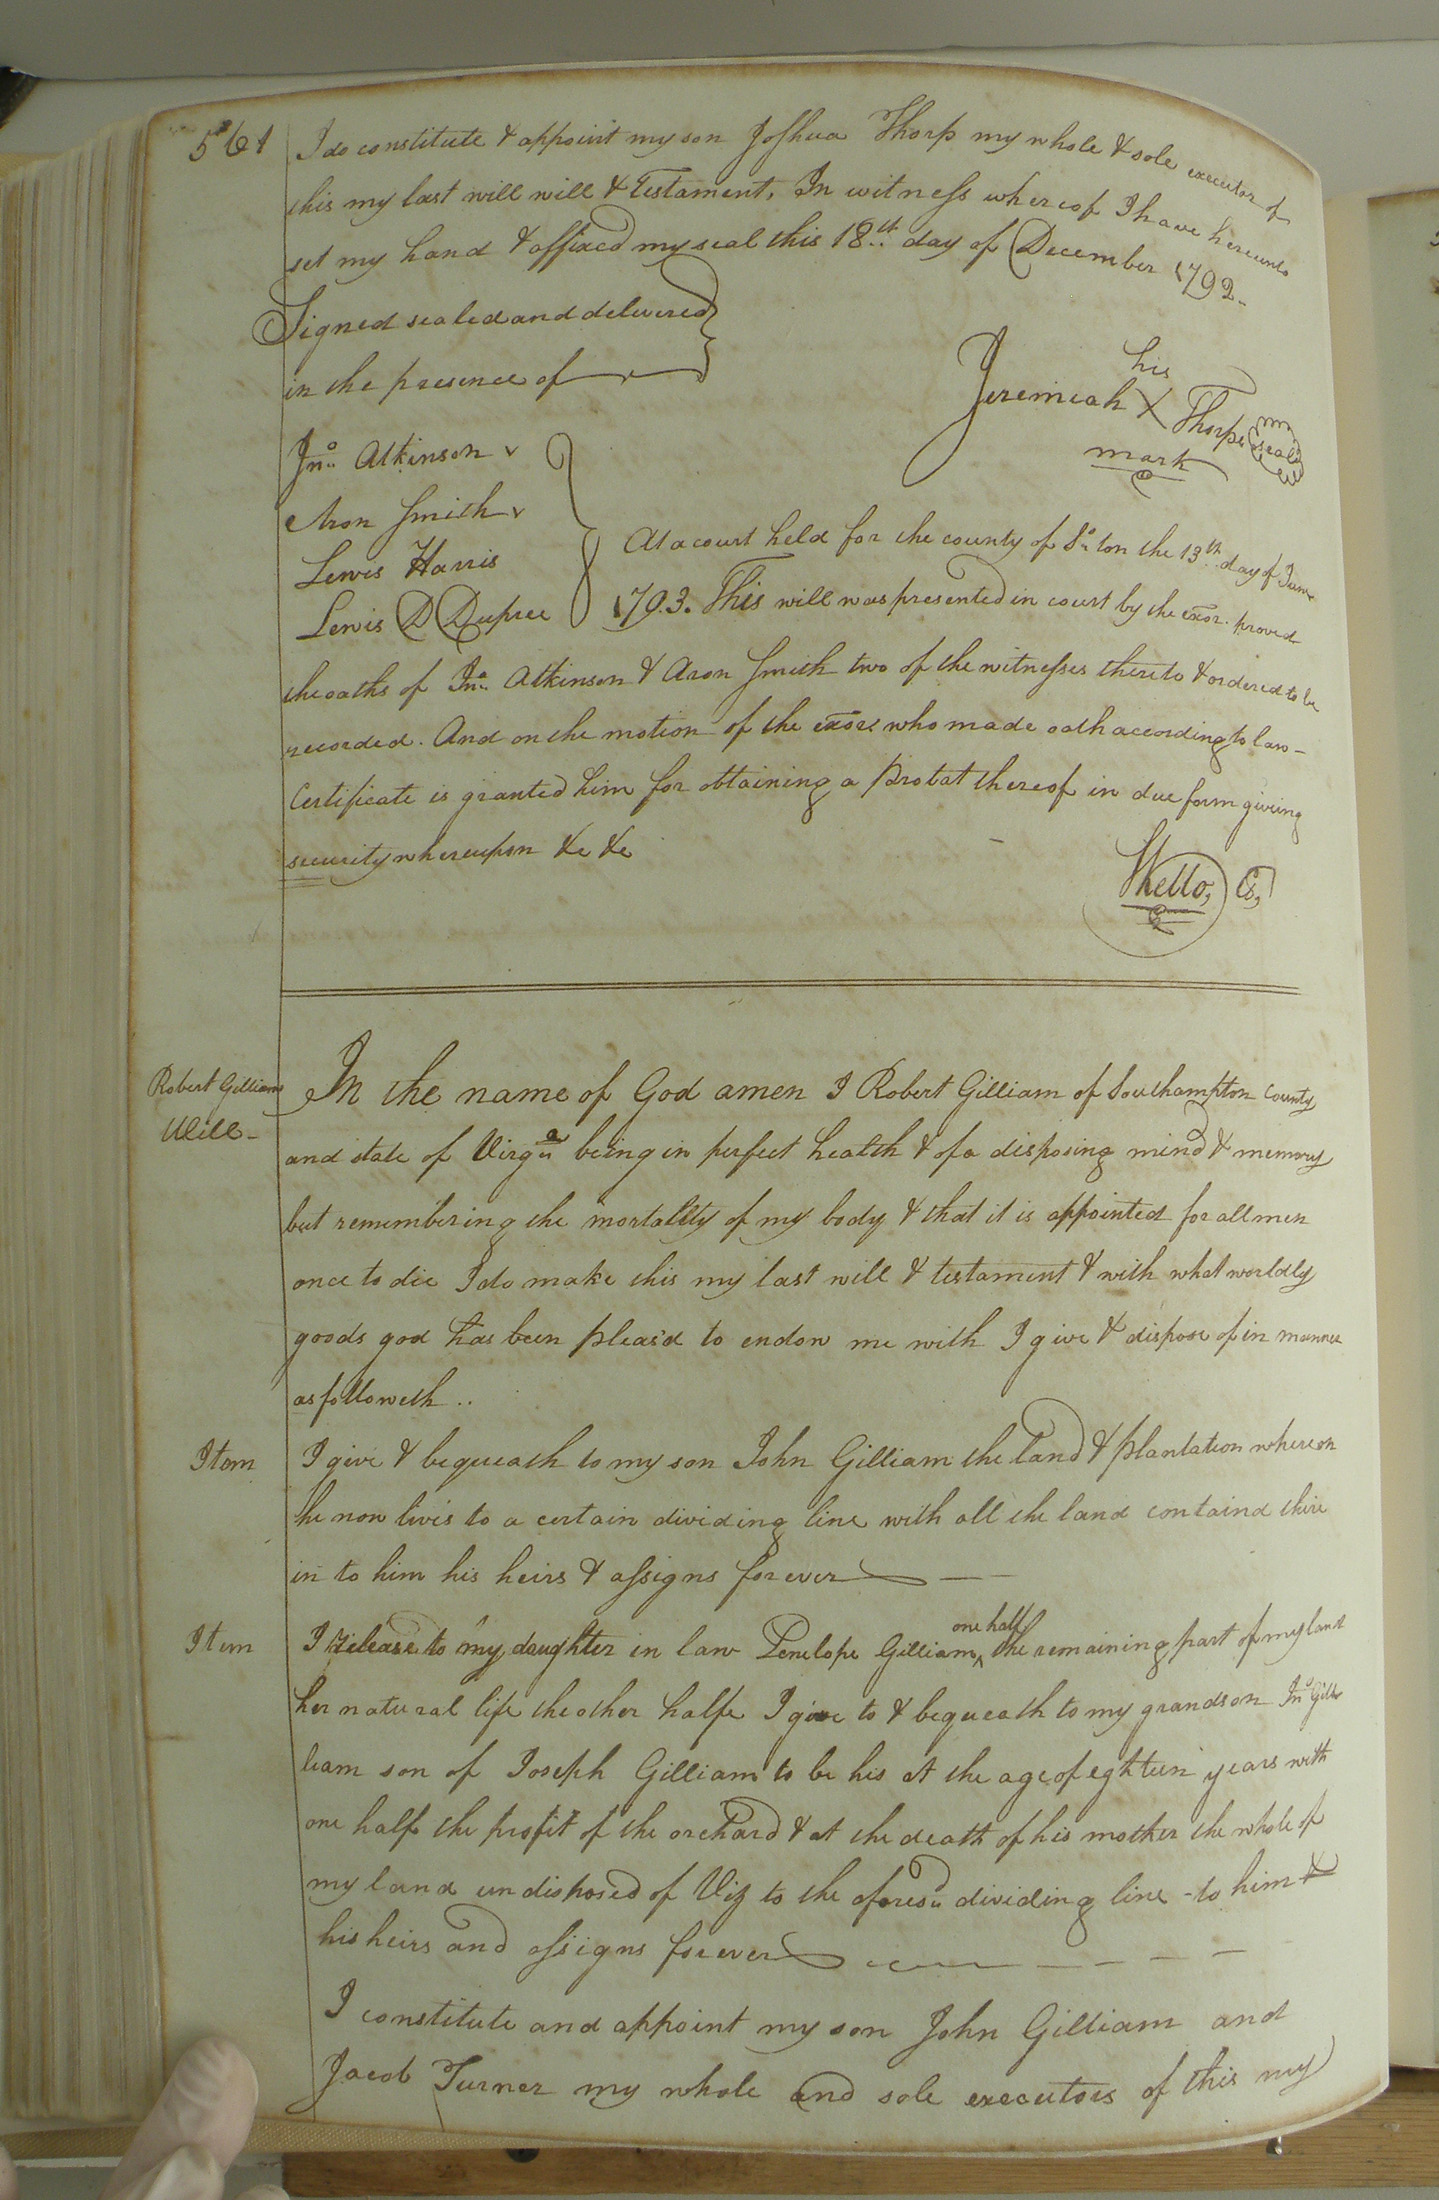 561
I do constitute & appoint my son Joshua Thorp my whole & sole executor of
this my last will will & Testament, In witness whereof I have hereunto
set my hand & affixed my seal this 18th day of December 1792-
Signed sealed and delivered
in the presence of
his
Jeremiah X Thorpe seal
mark
Jno. Atkinson
Aron Smith
Lewis Harris
Lewis D Dupree
At a court held for the county of So.ton the 13th day of June
1793. This will was presented in court by the exor. proved
the oaths of Jno. Atkinson & Aron Smith two of the witnesses thereto & ordered to be
recorded. And on the motion of the exors who made oath according to law-
Certificate is granted him for obtaining a Probat thereof in due form giving
security whereupon &c &c
Robert Gilliam
Will-
In the name of God amen I Robert Gilliam of Southampton County
and state of Virga. being in perfect health & of a disposing mind & memory
but remembering the mortality of my body & that it is appointed for all men
once to die I do make this my last will & testament & with what worldly
goods god has been pleas'd to endow me with I give & dispose of in manner
as followeth ..
Item
I give & bequeath to my son John Gilliam the land & plantation whereon
he now lives to a certain dividing line with all the land containd there
in to him his heirs & assigns forever
Item
I release to my daughter in law Penelope Gilliam ^ one half the remaining part of my land
her natural life the other halfe I give to & bequeath to my grandson Jno Gill
liam son of Joseph Gilliam to be his at the age of eghteen years with
one half the profit of the orchard & at the death of his mother the whole of
my land undisposed of Viz to the aforesd. dividing line - to him &
his heirs and assigns forever
I constitute and appoint my son John Gilliam and
Jacob Turner my whole and sole executors of this my